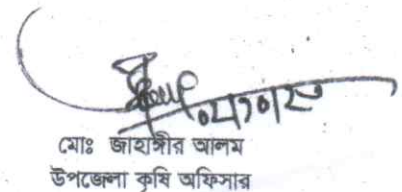 মোঃ জাহাঙ্গীর আলম
উপজেলা কৃষি অফিসার